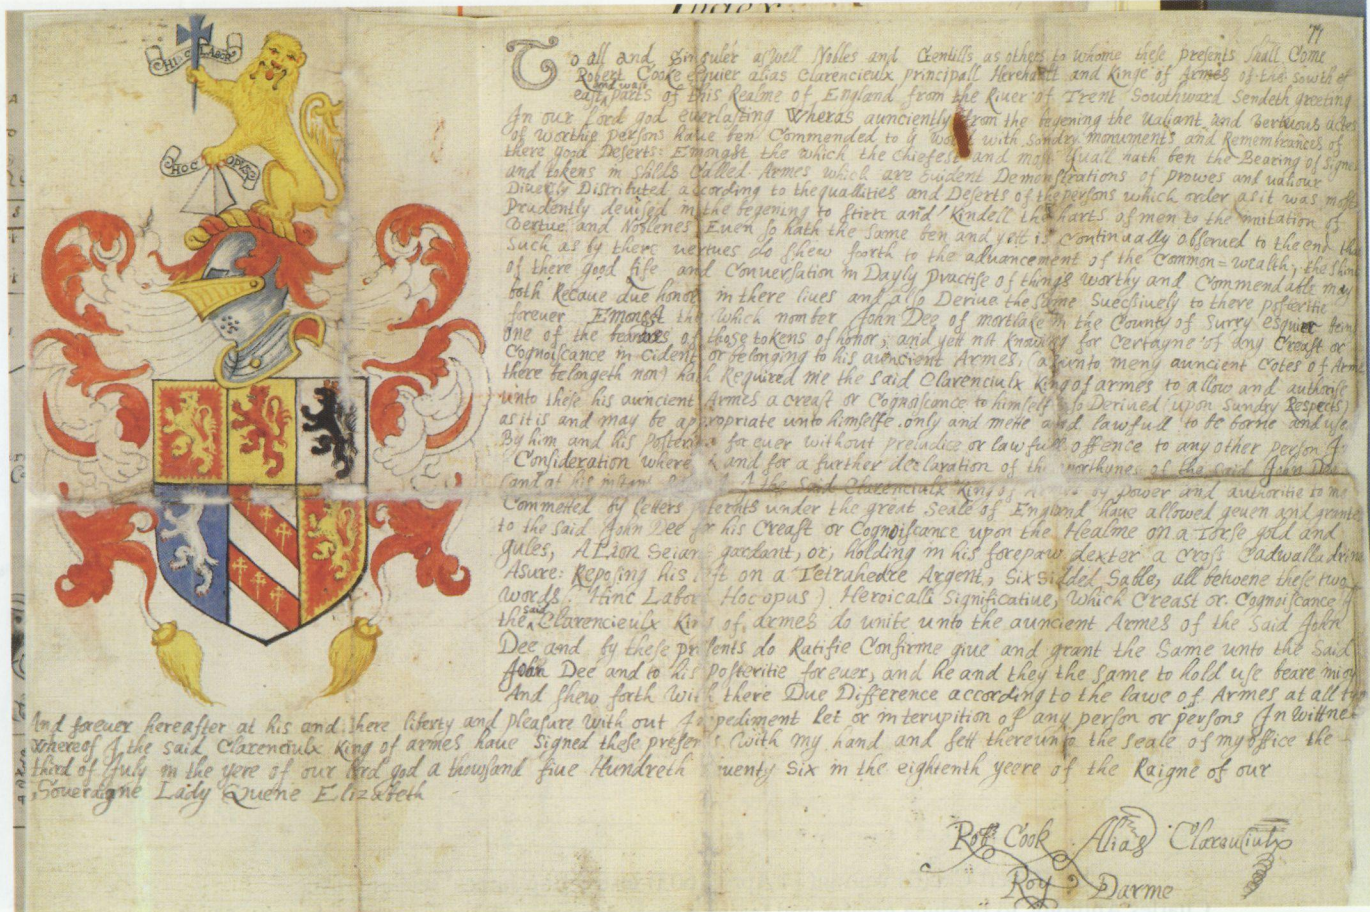 Index
77
HINC LABOR
HOC OPUS
To all and Singuler aswell Nobles and Gentills as others to whome these presents shall Come
Robert Cooke Esquier alias Clarencieulx principall Herehault and Kinge of Armes of the sowth
east and west parts of this Realme of England from the River of Trent Sowthward Sendeth greeting
In our Lord god everlasting Wheras aunciently from the begening the valiant and vertuous actes
of worthie persons have ben Commended to y with sondry monuments and Remembrances of
there good Deserts: Emongst the which the chiefest and most Usuall hath ben the Bearing of signes
and tokens in sheilds Called Armes which are evident Demonstrations of prowes and valour
Diversly Distributed according to the quallities and Deserts of the persons which order as it was most
Prudently devised in the begening to stirre and Kindell the harts of men to the imitation of
Vertue and Noblenes Even so hath the same ben and yett is Continually observed to the end that
Such as by there vertues do shew foorth to the advancement of the Common=wealth, the shine
of there good life and Conversation in Dayly practise of things worthy and Commendable may
both Receave due honor in there lives and also Derive the same Successively to there posteritie
forever Emongst the which nomber John Dee of mortlake in the County of Surry Esquier being
one of the bearers of those tokens of honor, and yett not knowing for Certayne of any Creast or
Cognoiscance in cident or belonging to his auncient Armes, (as unto meny auncient Cotes of Armes
there belongeth non) hath Required me the said Clarenciulx King of armes to allow and authorise
unto these his auncient Armes a creast or Cognoiscance to himself so Derived (upon sundry Respects)
as it is and may be appropriate unto himselfe only and mette and lawfull to be borne and use
By him and his posteritie forever without prejudice or lawfull offence to any other person In
Consideration where and for a further declaration of the worthynes of the said John Dee
(and at his the said Clarenciulx King of by power and authoritie to me
Committed by letters patents under the great Seale of England have allowed geven and grante
to the said John Dee for his Creast or Cognoiscance upon the Healme on a Torse gold and
gules, A Lion Seiant gardant, or, holding in his forepaw dexter a Cross Cadwalladrine
Asure: Reposing his left on a Tetrahedre Argent, Six sidded Sable, all betwene these two
words (Hinc Labor Hoc opus) Heroicalli Significative, Which Creast or Cognoiscance I
the said Clarencieulx King of armes do unite unto the auncient Armes of the Said John
Dee and by these presents do Ratifie Confirme give and grant the Same unto the Said
John Dee and to his posteritie forever, and he and they the same to hold use beare
And shew forth with there Due Difference according to the lawe of Armes at all
And forever hereafter at his and there liberty and pleasure with out Impediment let or interupition of any person or persons In wittnes
whereof I the said Clarenciulx King of armes have Signed these presents with my hand and sett thereunto the seale of my office the
third of July in the yere of our lord god a thowsand five Hundreth Six in the eighteenth yeere of the Raigne of our
Soveraigne Lady Quene Elizabeth
Robt Cook Alias Clarenciulx
Roy Darme